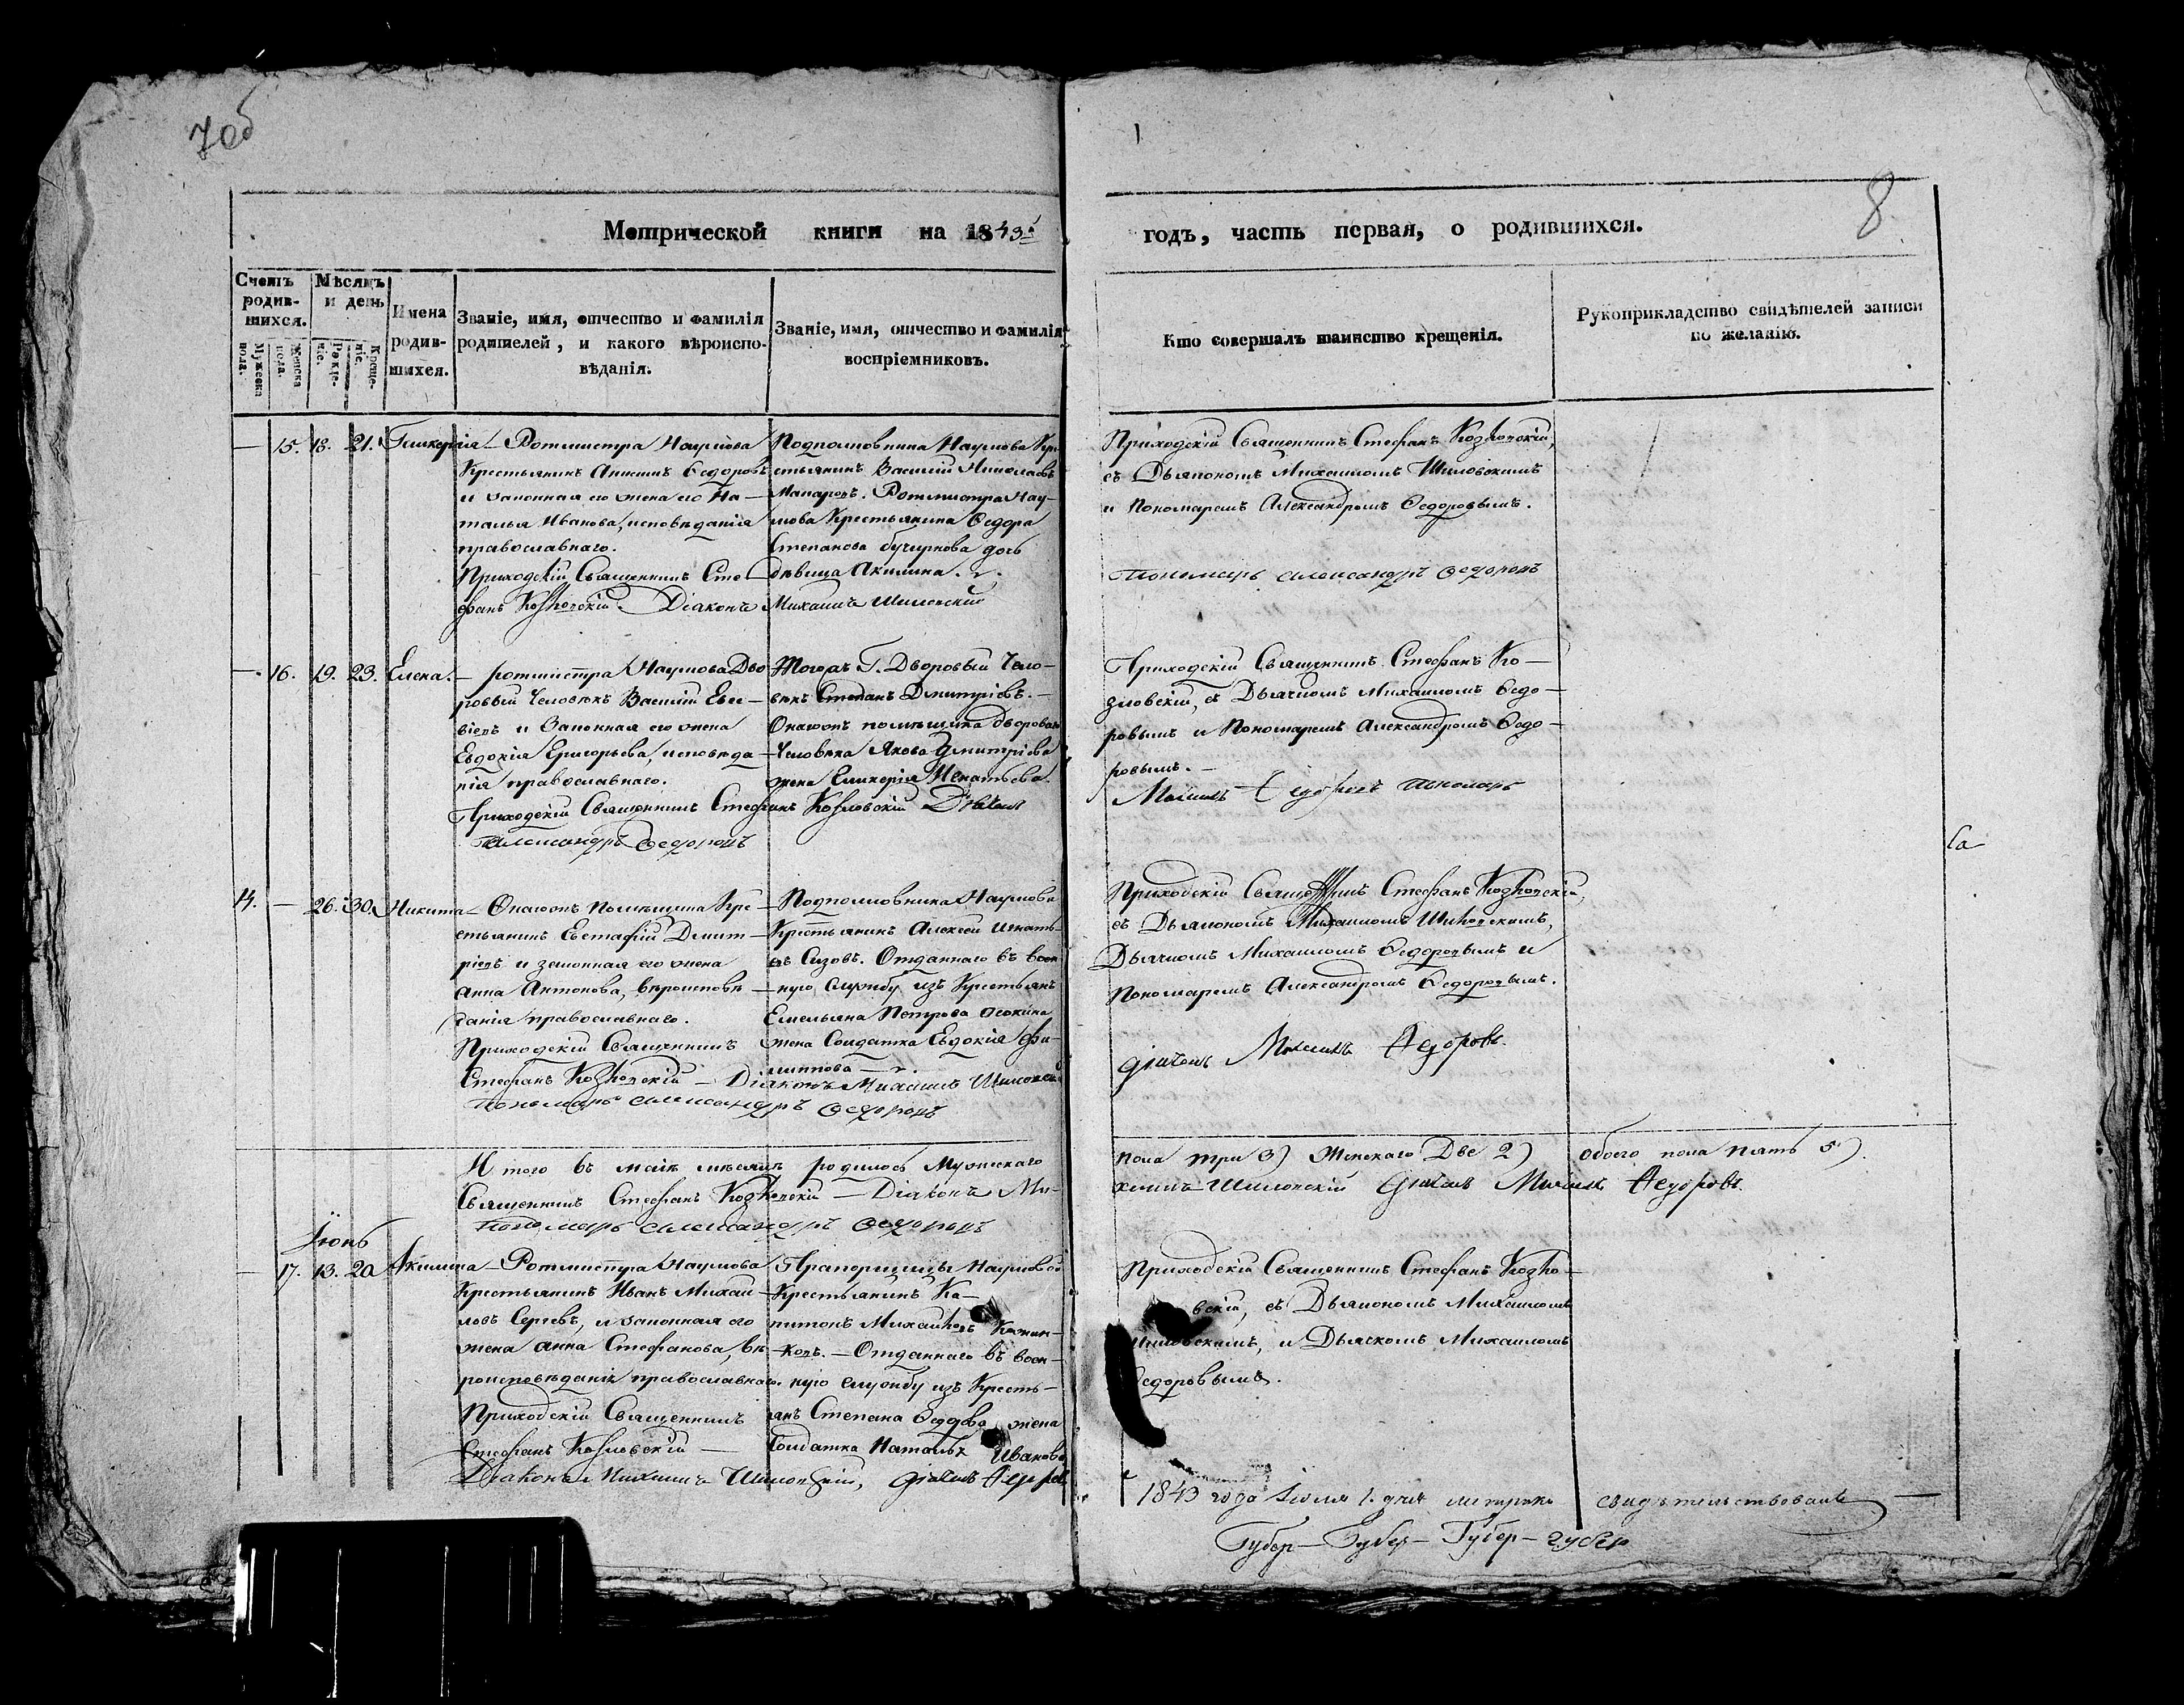 7об
8
Метрической книги на 1843й
годъ, часть первая, о родившихся.
Счетъ родив-шихся.
Мужеска пола.
Женска пола.
Мѣсяцъ и день
Рожде-ніе.
Креще-ніе.
Имена родив-шихся.
Званіе, имя, отчество и фамилія
родителей, и какого вѣроиспо-
вѣданія.
Званіе, имя, отчество и фамилія
воспріемниковъ.
Кто совершалъ таинство крещенія.
Рукоприкладство свидѣтелей записи
по желанію.
— 15. 18. 21. Гликерія —
Ротмистра Наумова
Крестьянинъ Анисимъ Ѳедоровъ
и законная его жена его На-
талья Иванова, исповѣданія
православнаго.
Приходскій Священникъ Сте-
фанъ Козловскій. Діаконъ Михаилъ Шиловскій
Подполковника Наумова Кре-
стьянинъ Василій Николаевъ
Макаровъ. Ротмистра Нау-
мова Крестьянина Ѳедора
Степанова дочь
дѣвица Акилина.
Приходскій Священникъ Стефанъ Козловскій,
съ Дьякономъ Михаиломъ Шиловскимъ
и Пономаремъ Александромъ Ѳедоровымъ.
Пономарь Александръ Ѳедоровъ
— 16. 19. 23. Елена. —
ротмистра Наумова Дво
ровый Человѣкъ Василій Евсе-
віевъ и Законная его жена
Евдокія Григорьева, исповѣда-
нія православнаго.
Приходскій Священникъ Стефанъ Козловскій Дьячокъ
Александръ Ѳедоровъ
Тогожъ Г. Дворовый Чело-
вѣкъ Степанъ Дмитріевъ. —
Онагожъ помѣщика дворовaго
Человѣка Якова Дмитріева
жена Гликерія Игнатьева.
Приходскій Священникъ Стефанъ Ко-
зловскій, съ Дьячкомъ Михаиломъ Ѳедо-
ровымъ и Пономаремъ Александромъ Ѳедо-
ровымъ. —
Михаилъ Ѳедоровъ пономарь
14. — 26. 30. Никита —
Онагожъ Помѣщика Кре-
стьянинъ Евстафій Дмит-
ріевъ и законная его жена
Анна Антонова, вѣроисповѣ-
данія православнаго.
Приходскій Священникъ
Стефанъ Козловскій — Діаконъ Михаилъ Шиловскій
Пономарь Александръ Ѳедоровъ
Подполковника Наумова
Крестьянинъ Алексѣй Игнать-
евъ Сизовъ. Отданнаго въ воен-
ную службу изъ Крестьянъ
Емельяна Петрова
жена Солдатка Евдокія Фи-
липпова —
Приходскій Священникъ Стефанъ Козловскій,
съ Дьякономъ Михаиломъ Шиловскимъ,
Дьячкомъ Михаиломъ Ѳедоровымъ и
Пономаремъ Александромъ Ѳедоровымъ.
дьячокъ Михаилъ Ѳедоровъ.
Итого въ маіѣ мѣсяцѣ родилось Мужескаго
пола три 3) Женскаго Две 2) обоего пола пять 5).
Священникъ Стефанъ Козловскій — Діаконъ Ми-
хаилъ Шиловскій дьячокъ Михаилъ Ѳедоровъ.
Пономарь Александръ Ѳедоровъ
Са
Іюнь
— 17. 13. 20 Акилина —
Ротмистра Наумова
Крестьянинъ Иванъ Михай-
ловъ Сергѣевъ, и законная его
жена Анна Стефанова, вѣ-
роисповѣданія православнаго.
Приходскій Священникъ
Стефанъ Козловскій —
Діаконъ Михаилъ Шиловскій, дьячокъ Ѳедоровъ
Прапорщицы Наумовой
Крестьянинъ Ка-
питонъ Михайловъ
Отданнаго въ воен-
ную службу изъ Кресть-
янъ Степана жена
Солдатка Наталья Иванова
Приходскій Священникъ Стефанъ Козло-
вскій, съ Дьякономъ Михаиломъ
Шиловскимъ, и Дьячкомъ Михаиломъ
Ѳедоровымъ.
1843 года Іюля 1. дня свидѣтельствовалъ —
Губер — Губер — Губер — губер